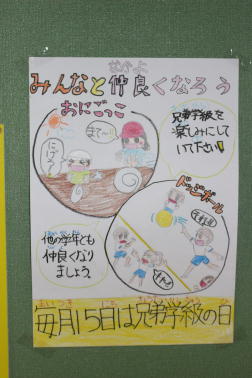 なかよ
みんなと仲良くなろう
おにごっこ
まて〜!!
にげろ!
兄弟学級を
楽しみにして
いて下さい!
ドッジボール
他の学年とも
仲良くなり
ましょう。
毎月15日は兄弟学級の日